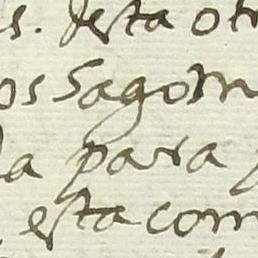 s. desta otr
os sagom
da para
esta com